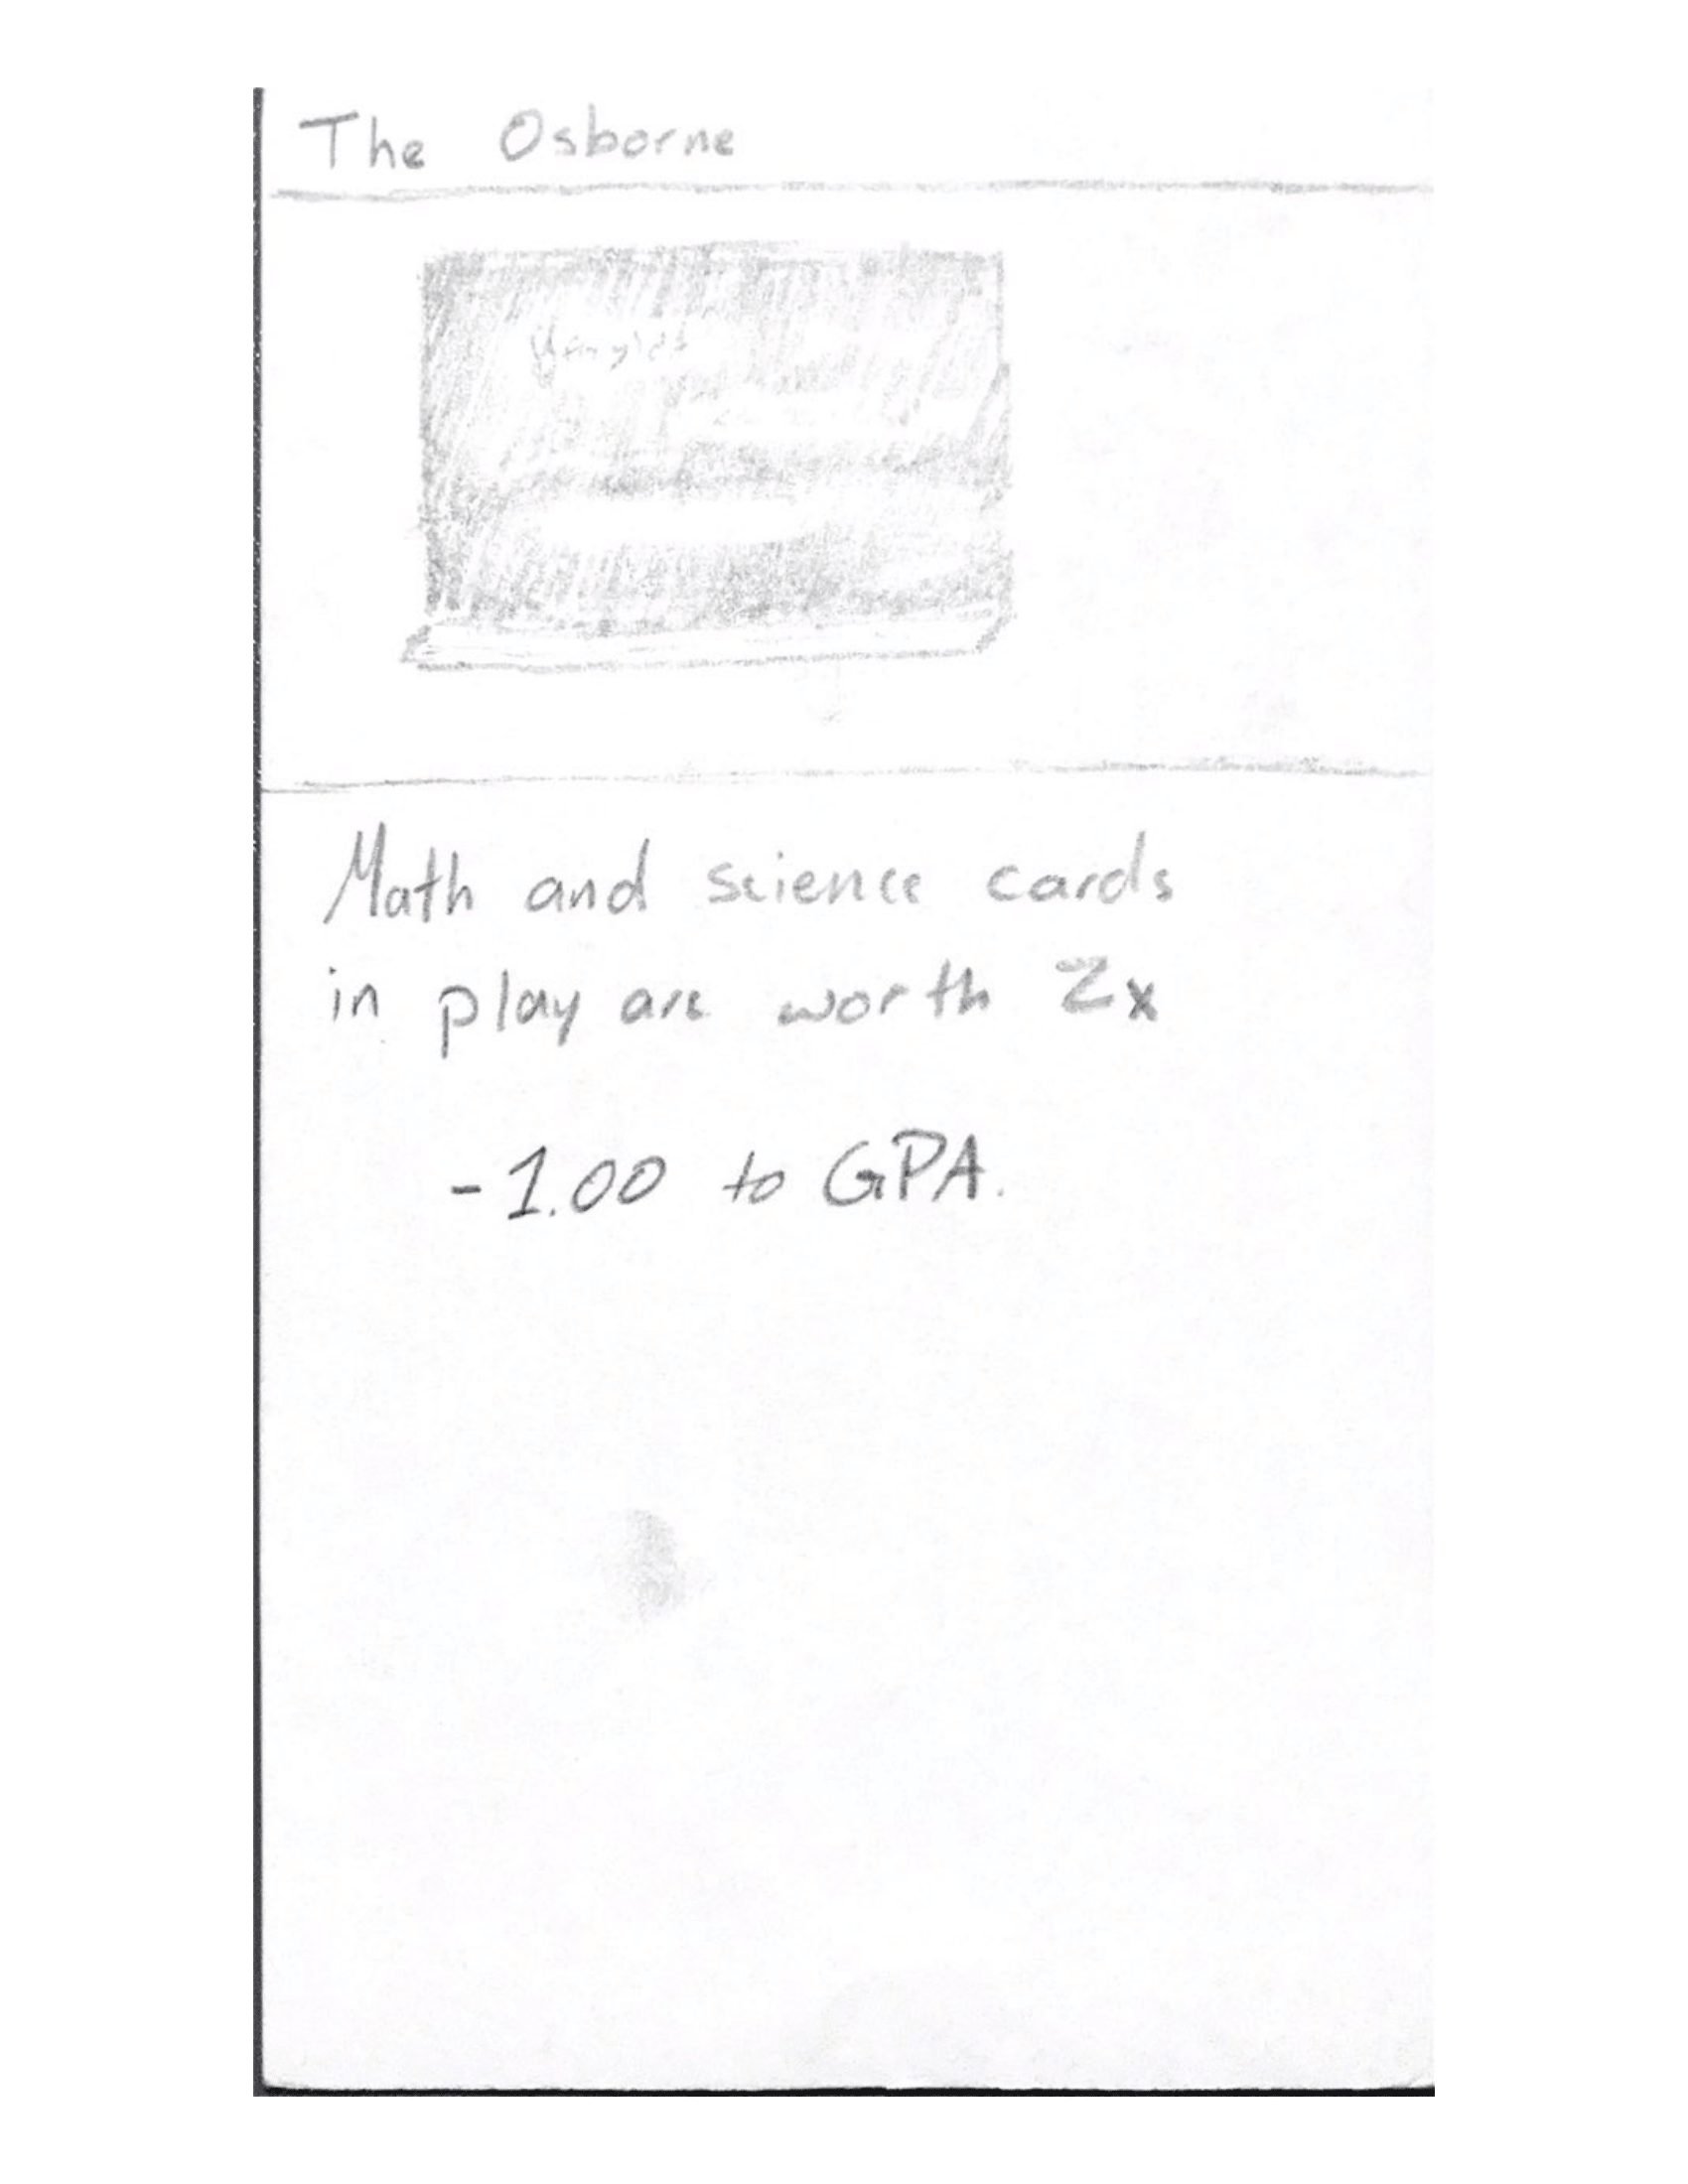 The Osborne
Math and science cards
in play are worth 2x
-1.00 to GPA.